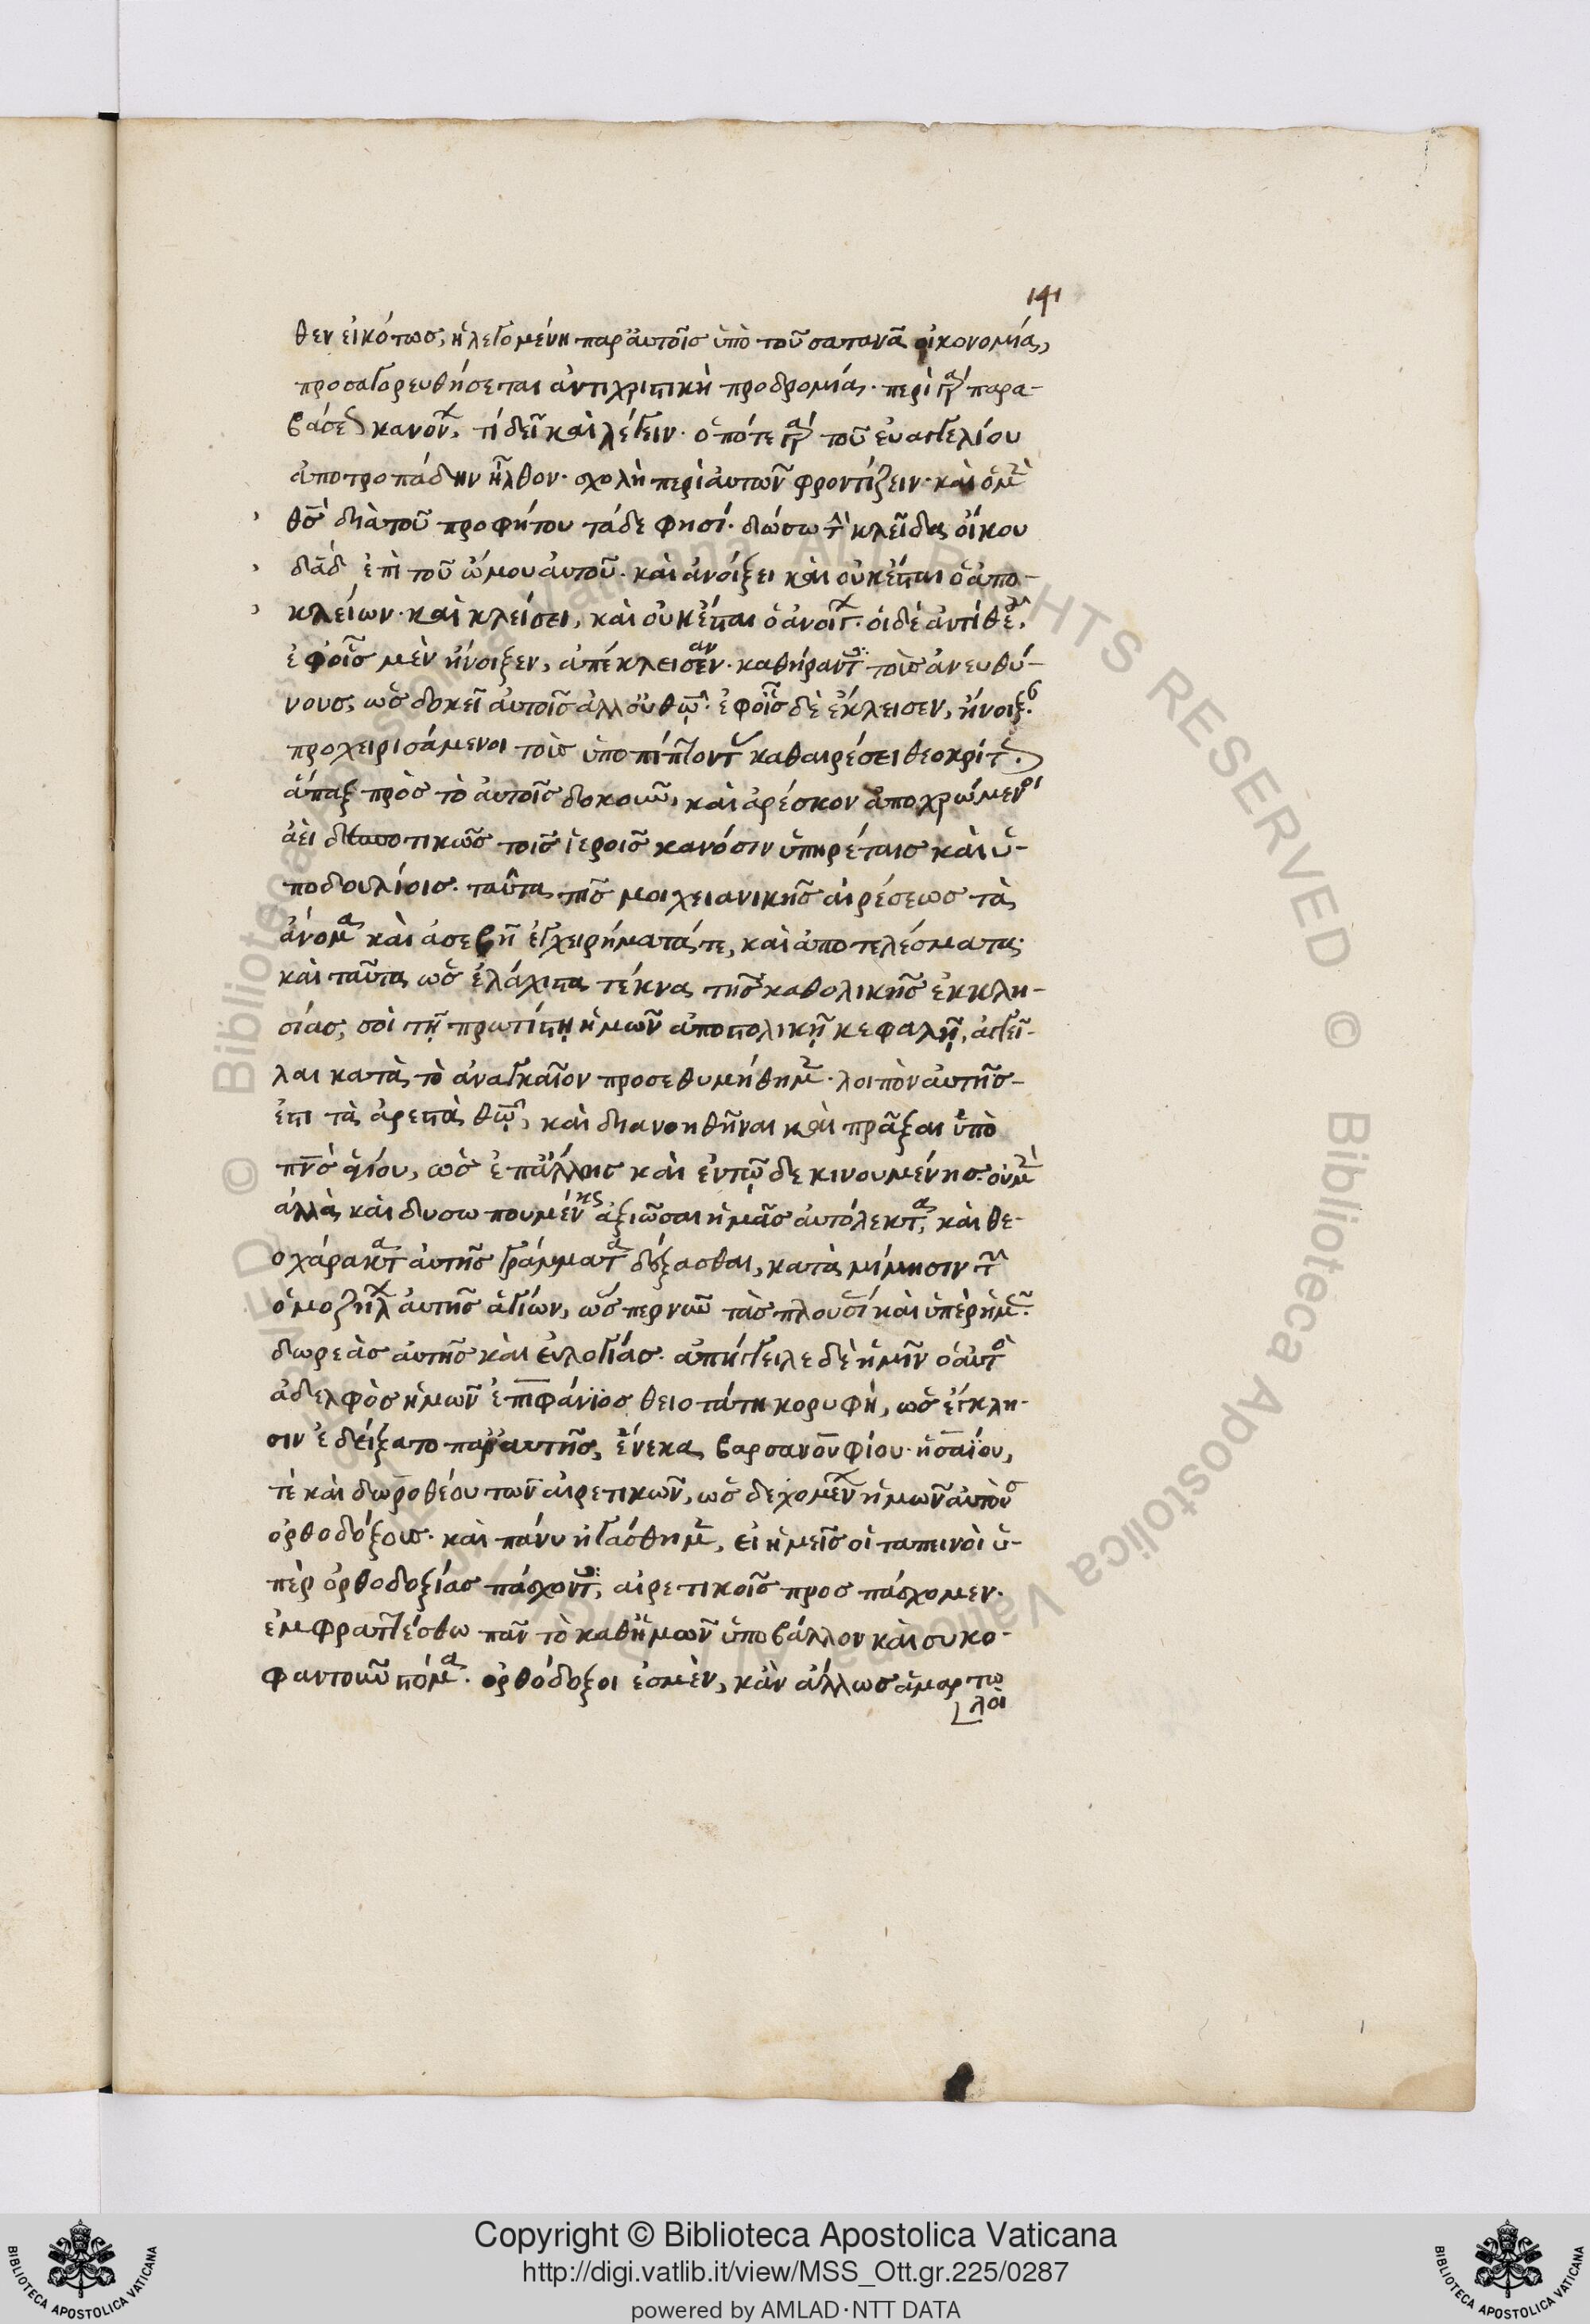 141
θεν εἰκότως, ἡ λεγομένη παρ' αὐτοῖς ὑπὸ τοῦ σατανᾶ οἰκονομία,
προσαγορευθήσεται ἀντιχριστικὴ προδρομία. περὶ γ(ὰρ) παρα-
βάσε(ως) κανόν(ων), τί δεῖ καὶ λέγειν. ὁπότε γ(ὰρ) τοῦ εὐαγγελίου
ἀποτροπάδην ἦλθον. σχολὴ περὶ αὐτῶν φροντίζειν. καὶ ὁ μ(ὲν)
θ(εὸ)ς διὰ τοῦ προφήτου τάδε φησί. δώσω τ(ὴν) κλεῖδα οἴκου
δα(υὶ)δ ἐπὶ τοῦ ὤμου αὐτοῦ. καὶ ἀνοίξει καὶ οὐκ ἔσται ὁ ἀπο-
κλείων. καὶ κλείσει, καὶ οὐκ ἔσται ὁ ἀνοίγ(ων). οἱ δὲ ἀντίθε(οι),
ἐφ' οἷς μὲν ἤνοιξεν, ἀπέκλεισαν. καθήραντ(ες) τοὺς ἀνευθύ-
νους, ὡς δοκεῖ αὐτοῖς ἀλλ' οὐ θῶ. ἐφ' οἷς δὲ ἔκλεισεν, ἤνοιξ.
προχειρισάμενοι τοὺς ὑποπίπτοντ(ας) καθαιρέσει θεοκρίτ(ως).
ἅπαξ πρὸς τὸ αὐτοῖς δοκοῦν, καὶ ἀρέσκον ἀποχρώμενοι
ἀεὶ τικῶς τοῖς ἱεροῖς κανόσιν ὑπηρέταις καὶ ὑ-
ποδουλίοις. ταῦτα τῆς μοιχειανικῆς αἱρέσεως τὰ
ἄνομα καὶ ἀσεβῆ ἐγχειρήματά τε, καὶ ἀποτελέσματα.
καὶ ταῦτα ὡς ἐλάχιστα τέκνα τῆς καθολικῆς ἐκκλη-
σίας, σοὶ τῇ πρωτίστῃ ἡμῶν ἀποστολικῇ κεφαλῇ, ἀγγεῖ-
λαι κατὰ τὸ ἀναγκαῖον προσεθυμήθημ(εν). λοιπὸν αὐτῆς
ἐστι τὰ ἀρεστὰ θῶ, καὶ διανοηθῆναι καὶ πρᾶξαι ὑπὸ
πν(εύματο)ς ἁγίου, ὡς ἐπ' ἄλλοις καὶ ἐν τῷδε κινουμένης. οὐ μ(ὴν)
ἀλλὰ καὶ δυσωπουμένης ἀξιῶσαι ἡμᾶς αὐτόλεκτα, καὶ θε-
οχάρακτα αὐτῆς γράμματα δέξασθαι, κατὰ μίμησιν τ(ῶν)
ὁμοζήλ(ων) αὐτῆς ἁγίων, ὥσπερ νῦν τὰς πλουσί καὶ ὑπὲρ ἡμ(ᾶς)
δωρεὰς αὐτῆς καὶ εὐλογίας. ἀπήγγειλε δὲ ἡμῖν ὁ αὐτὸ(ς)
ἀδελφὸς ἡμῶν ἐπιφάνιος θειοτάτη κορυφὴ, ὡς ἔγκλη-
σιν ἐδείξατο παρ' αὐτῆς, ἕνεκα βαρσανουφίου. ἡσαΐου,
τὲ καὶ δωροθέου τῶν αἱρετικῶν, ὡς δεχομέν(ων) ἡμῶν αὐτοὺς
ὀρθοδόξους. καὶ πάνυ ἠγάσθημ(εν), εἰ ἡμεῖς οἱ ταπεινοὶ ὑ-
πὲρ ὀρθοδοξίας πάσχοντ(ες), αἱρετικοῖς προσπάσχομεν.
ἐμφραττέσθω πᾶν τὸ καθ' ἡμῶν ὑποβάλλον καὶ συκο-
φαντοῦν στόμα. ὀρθόδοξοι ἐσμὲν, κἂν ἄλλως ἁμαρτω
λοὶ
Copyright © Biblioteca Apostolica Vaticana
http://digi.vatlib.it/view/MSS_Ott.gr.225/0287
powered by AMLAD·NTT DATA